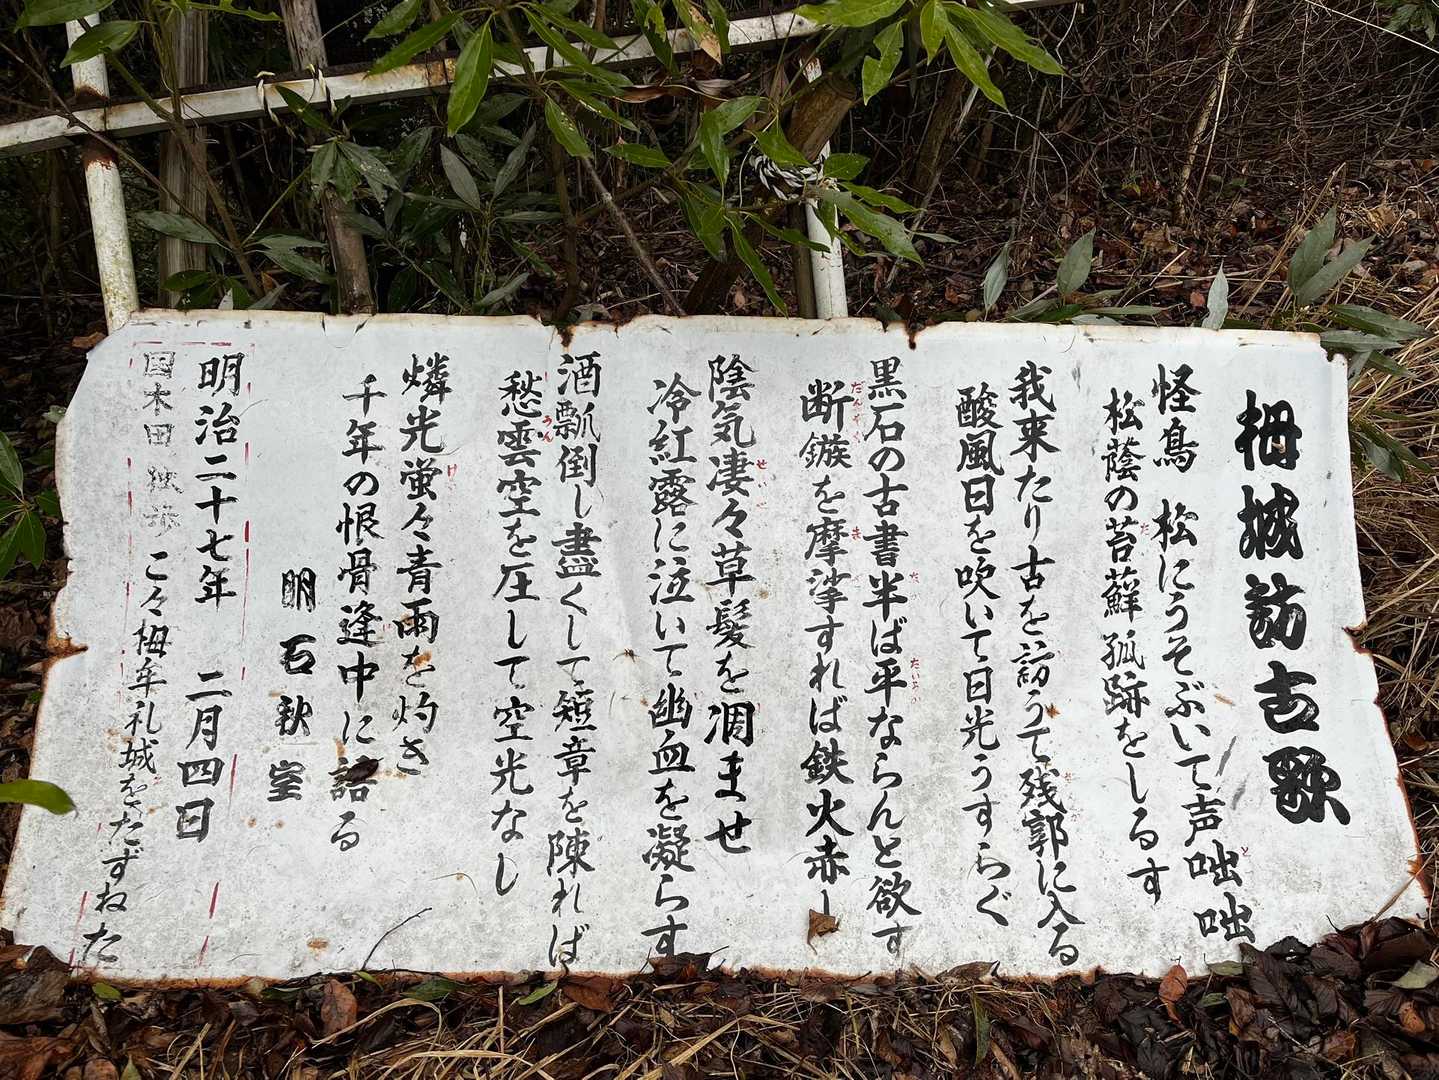 栂城訪古歌
怪鳥 松にうそぶいて声咄咄
松蔭の苔蘚孤跡をしるす
我来たり古を訪うて残郭に入る
酸風日を吹いて日光うすらぐ
黒石の古書半ば平ならんと欲す
断鏃を摩挲すれば鉄火赤し
陰気凄々草髪を凋ませ
冷紅露に泣いて幽血を凝らす
酒瓢倒し盡くして短章を陳れば
愁雲空を圧して空光なし
燐光蛍々青雨を灼き
千年の恨骨逢中に語る
明石秋室
明治二十七年 二月四日
国木田独歩こゝ栂牟礼城をたずねた